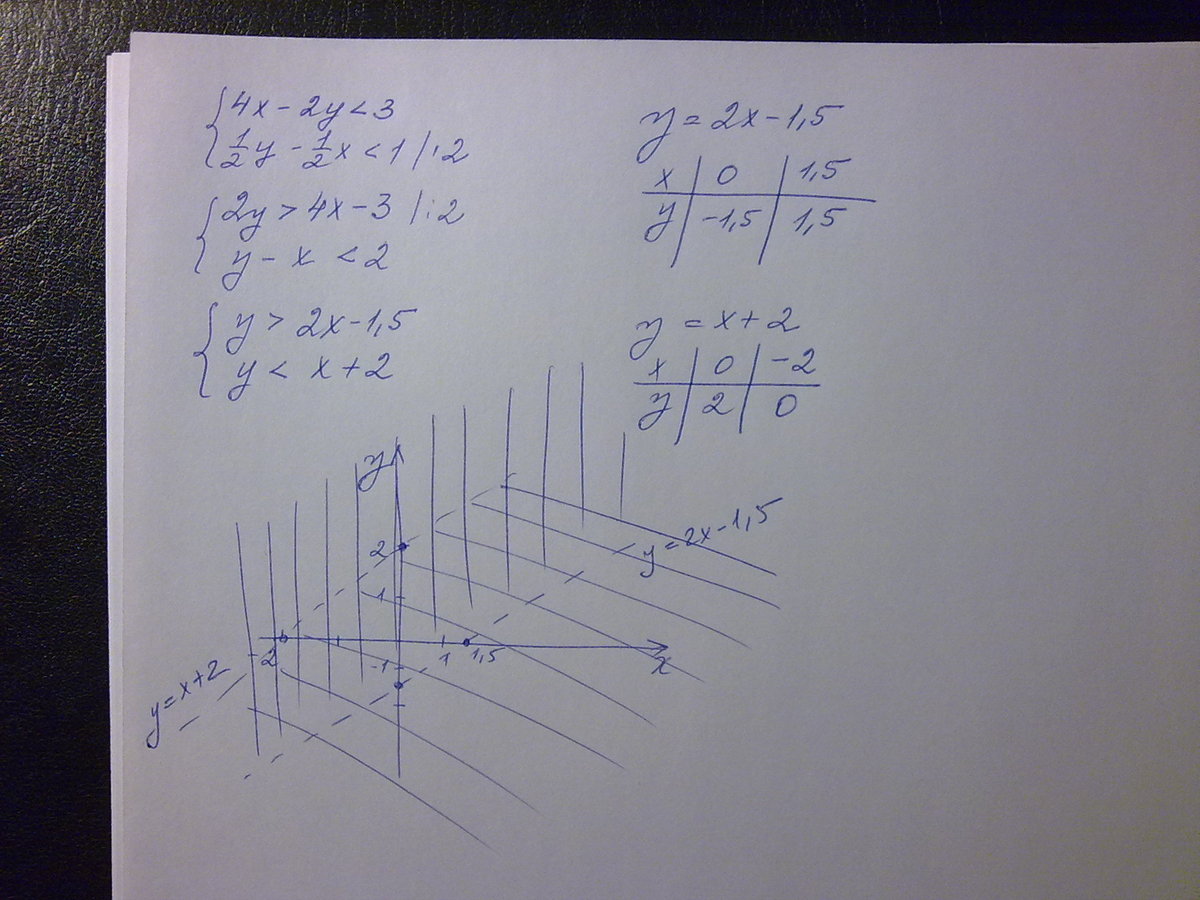 4x - 2y < 3
1/2 y - 1/2 x < 1 | · 2
2y > 4x - 3 | : 2
y - x < 2
y > 2x - 1,5
y < x + 2
y = 2x - 1,5
x | 0 | 1,5
y | -1,5 | 1,5
y = x + 2
x | 0 | -2
y | 2 | 0
y
2
1
y = 2x - 1,5
2
-1
1
1,5
x
y = x + 2